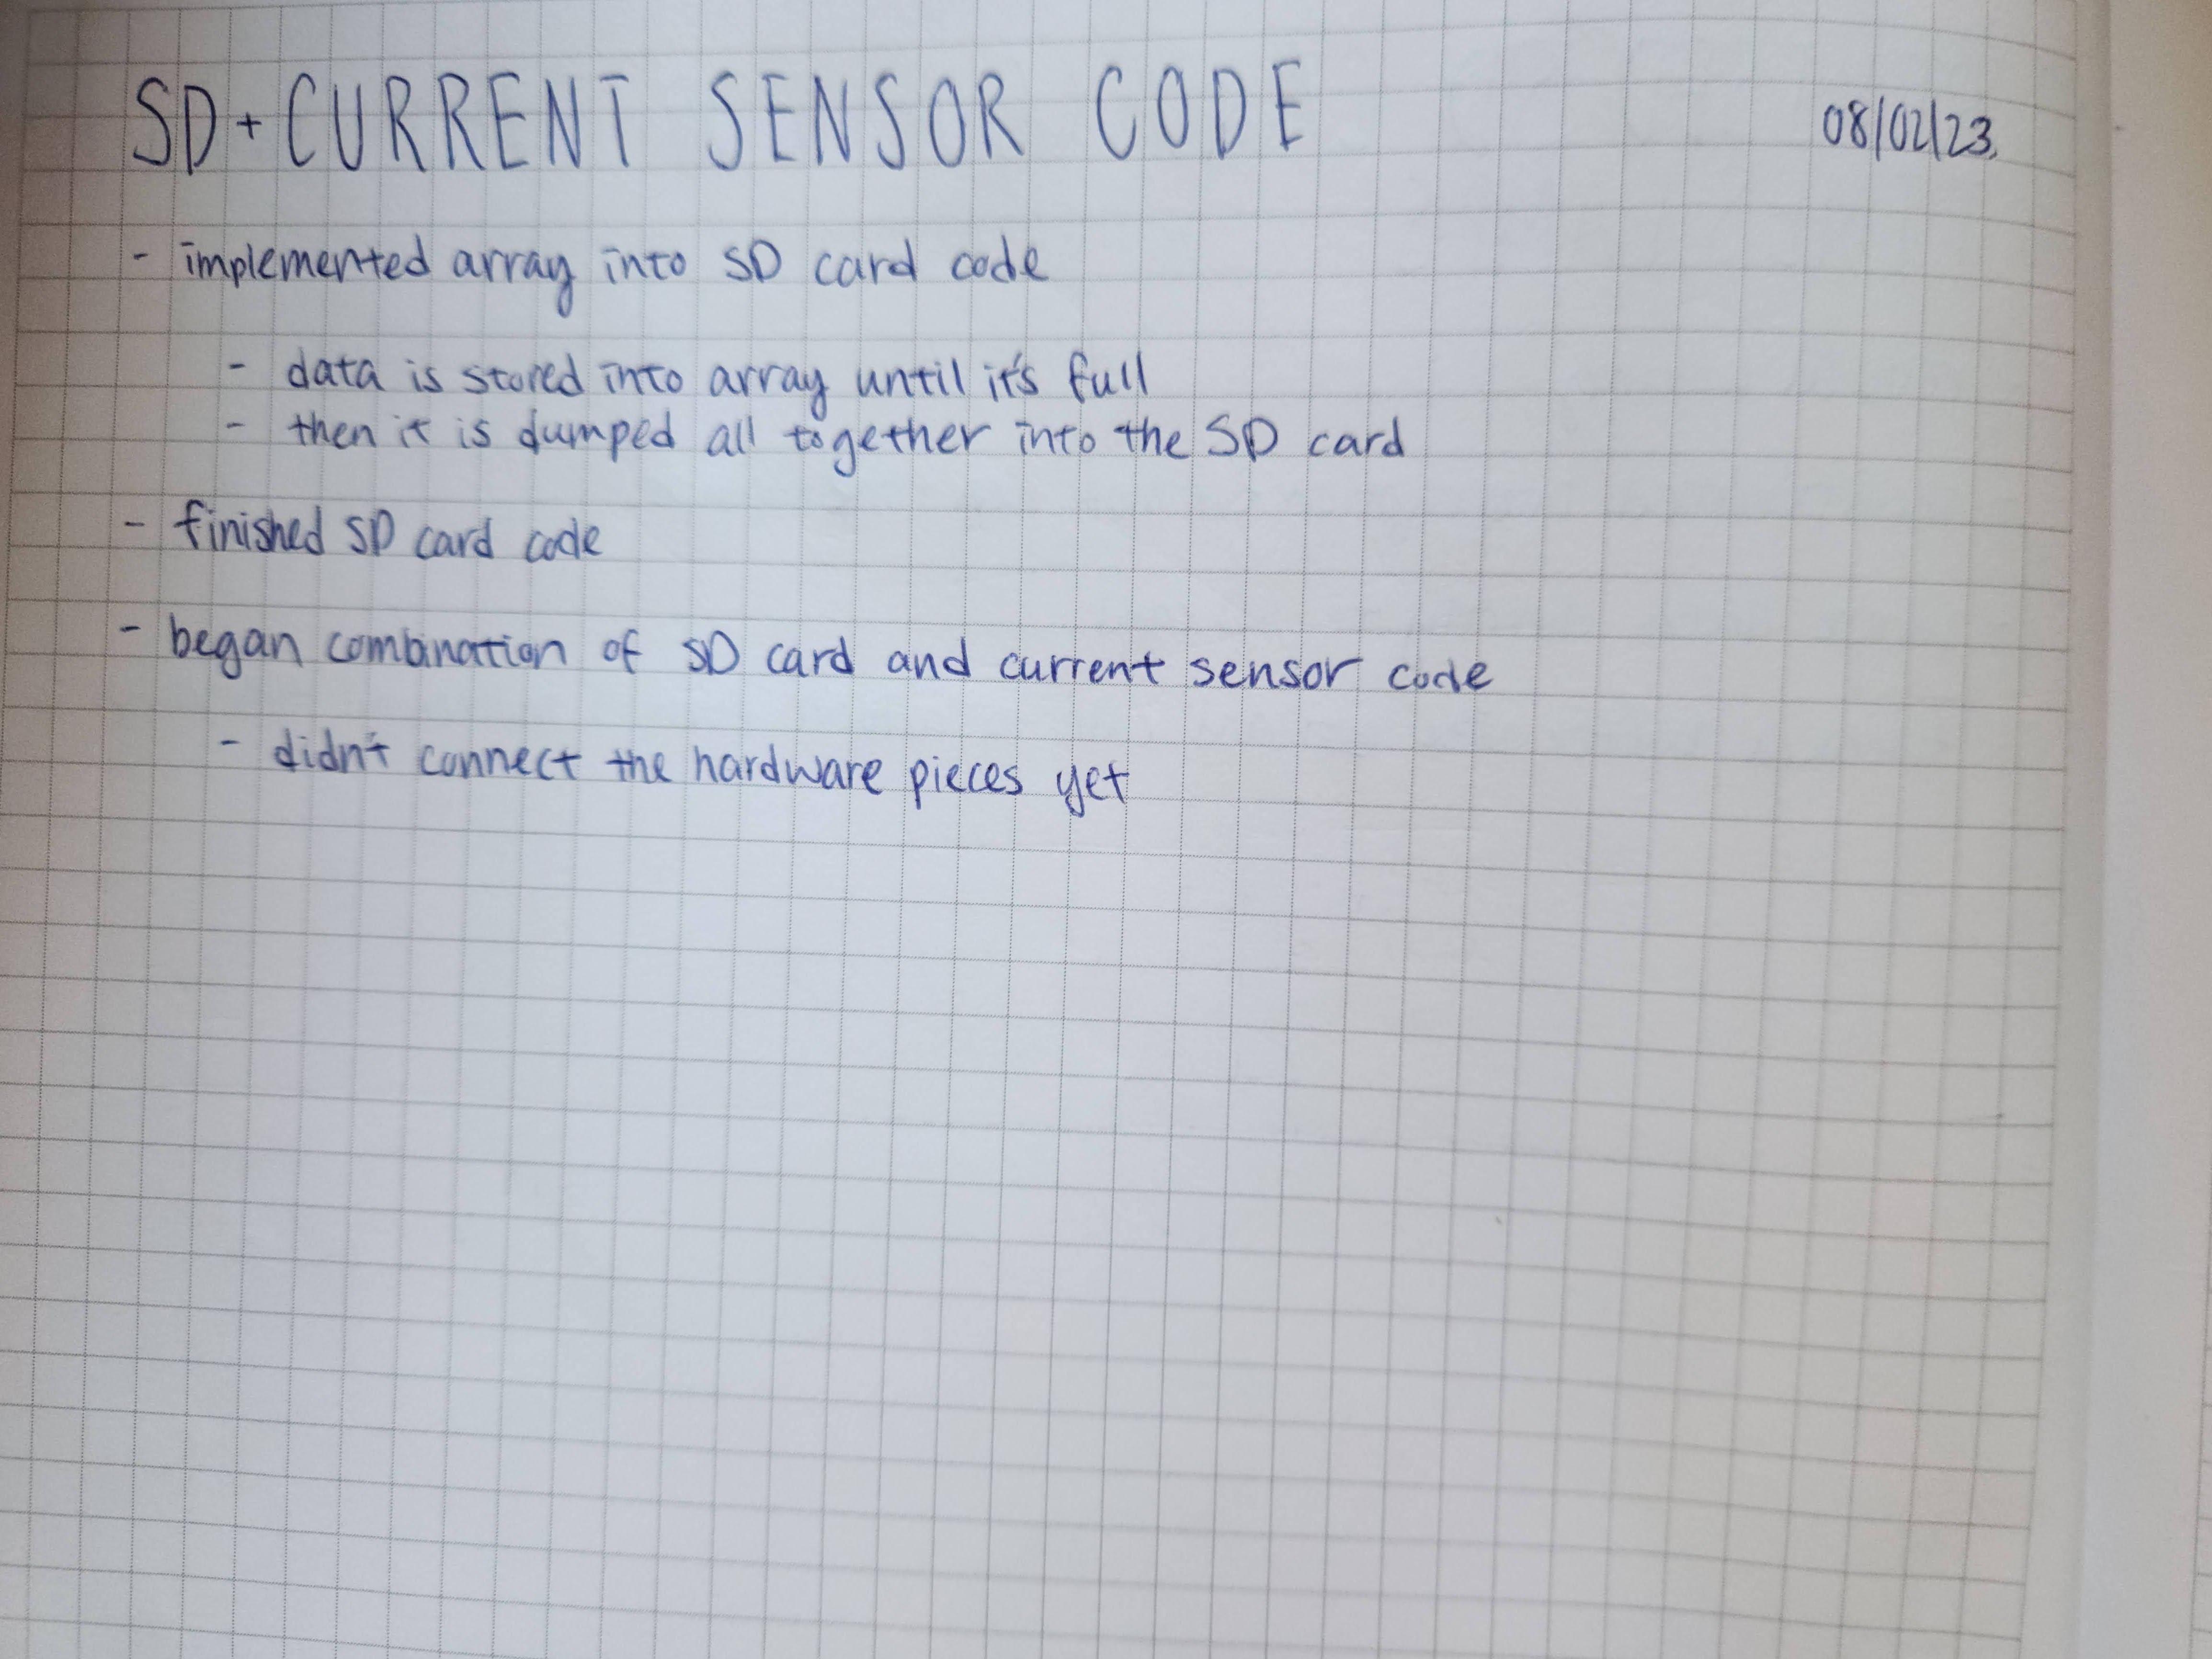 SD + CURRENT SENSOR CODE
08/02/23.
- implemented array into SD card code
- data is stored into array until it's full
- then it is dumped all together into the SD card
- finished SD card code
- began combination of SD card and current sensor code
- didn't connect the hardware pieces yet